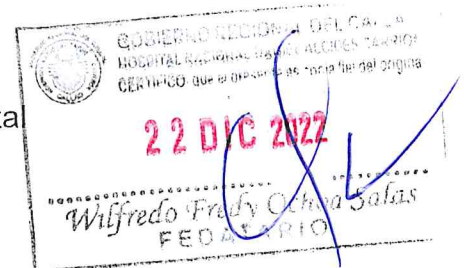 GOBIERNO REGIONAL DEL CALLAO
HOSPITAL NACIONAL DANIEL ALCIDES CARRION
CERTIFICO: que la presente es copia fiel del original
tal
22 DIC 2022
Wilfredo Fredy Ochoa Salas
FEDATARIO